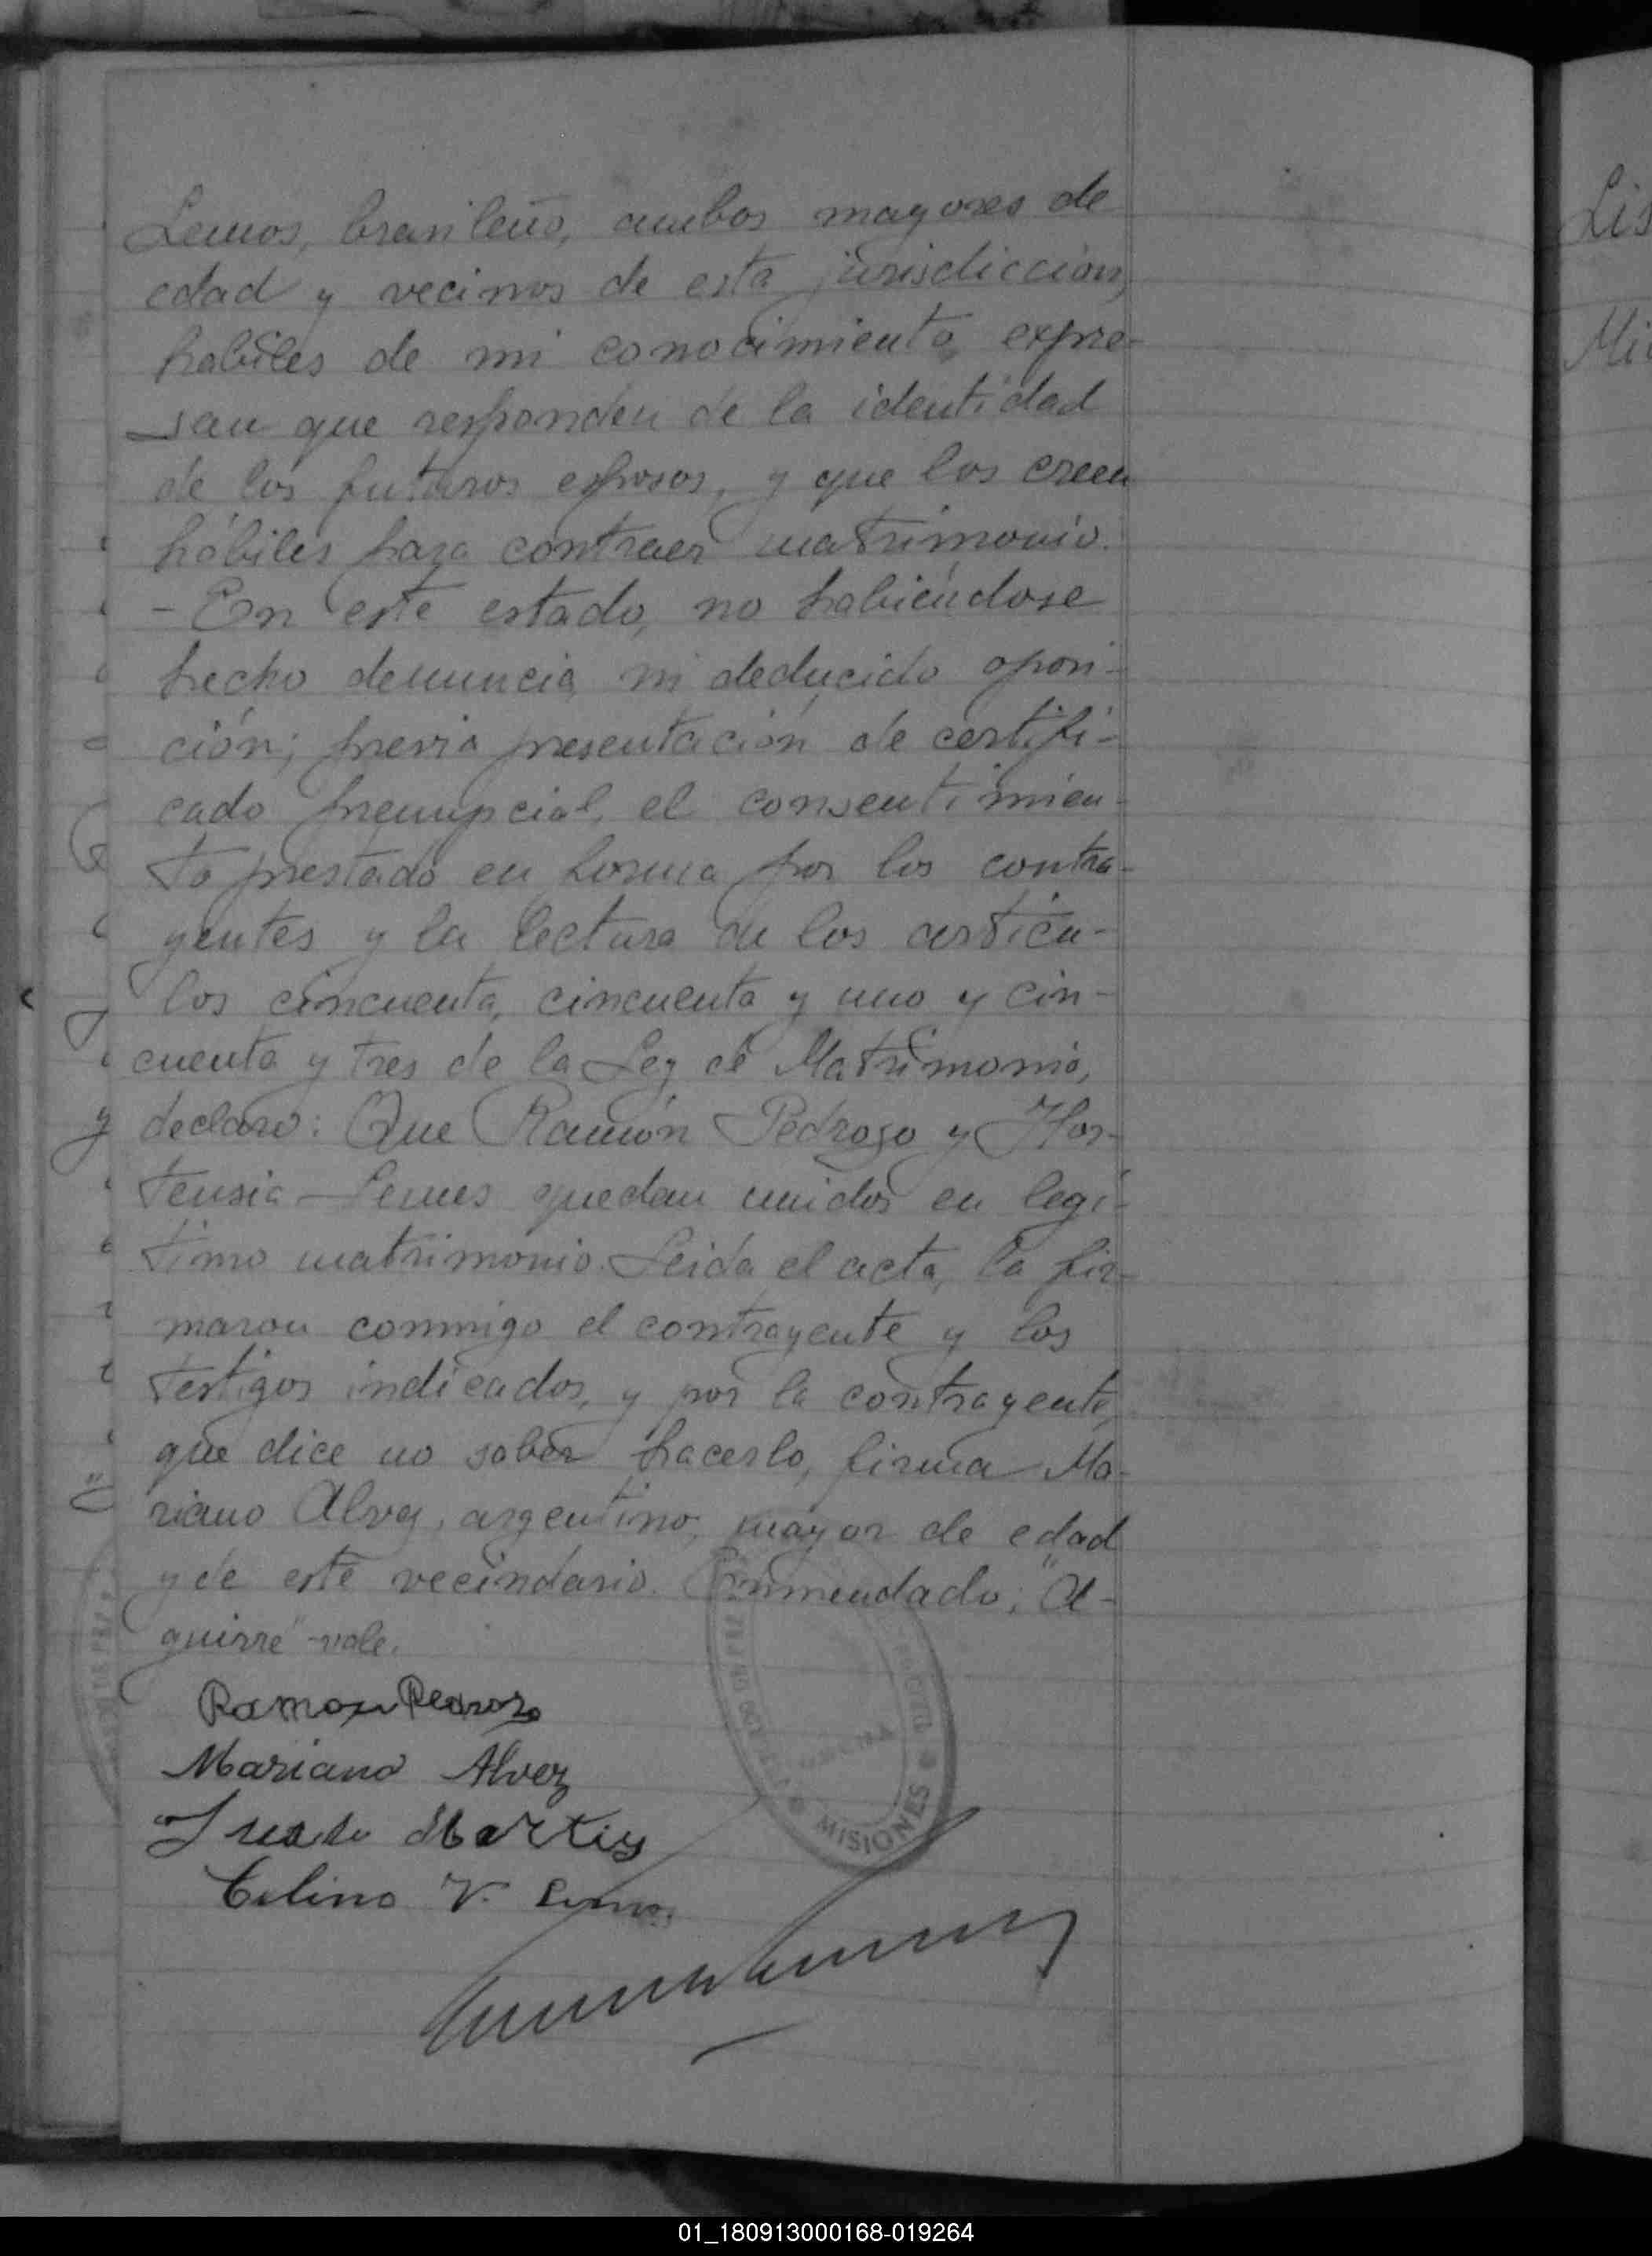 Lemos, brasileño, ambos mayores de
edad y vecinos de esta jurisdicción,
habiles de mi conocimiento, expre-
san que responden de la identidad
de los futuros esposos, y que los creen
hábiles para contraer matrimonio.
- En este estado, no habiéndose
hecho denuncia, ni deducido oposi-
ción; previa presentación de certifi-
cado prenupcial, el consentimien-
to prestado en forma por los contra-
yentes y la lectura de los artícu-
los cincuenta, cincuenta y uno y cin-
cuenta y tres de la Ley de Matrimonio,
declaro: Que Ramón Pedrozo y Hor-
tensia Lemes quedan unidos en legí-
timo matrimonio. Leida el acta, la fir-
maron conmigo el contrayente y los
testigos indicados, y por la contrayente,
que dice no saber hacerlo, firma Ma-
riano Alvez, argentino, mayor de edad
y de este vecindario. Enmendado: "A-
guirre" -vale.
Ramon Pedrozo
Mariano Alvez
Martiz
Celino V. Lemos
MISIONES
Lis
Mi
01_180913000168-019264